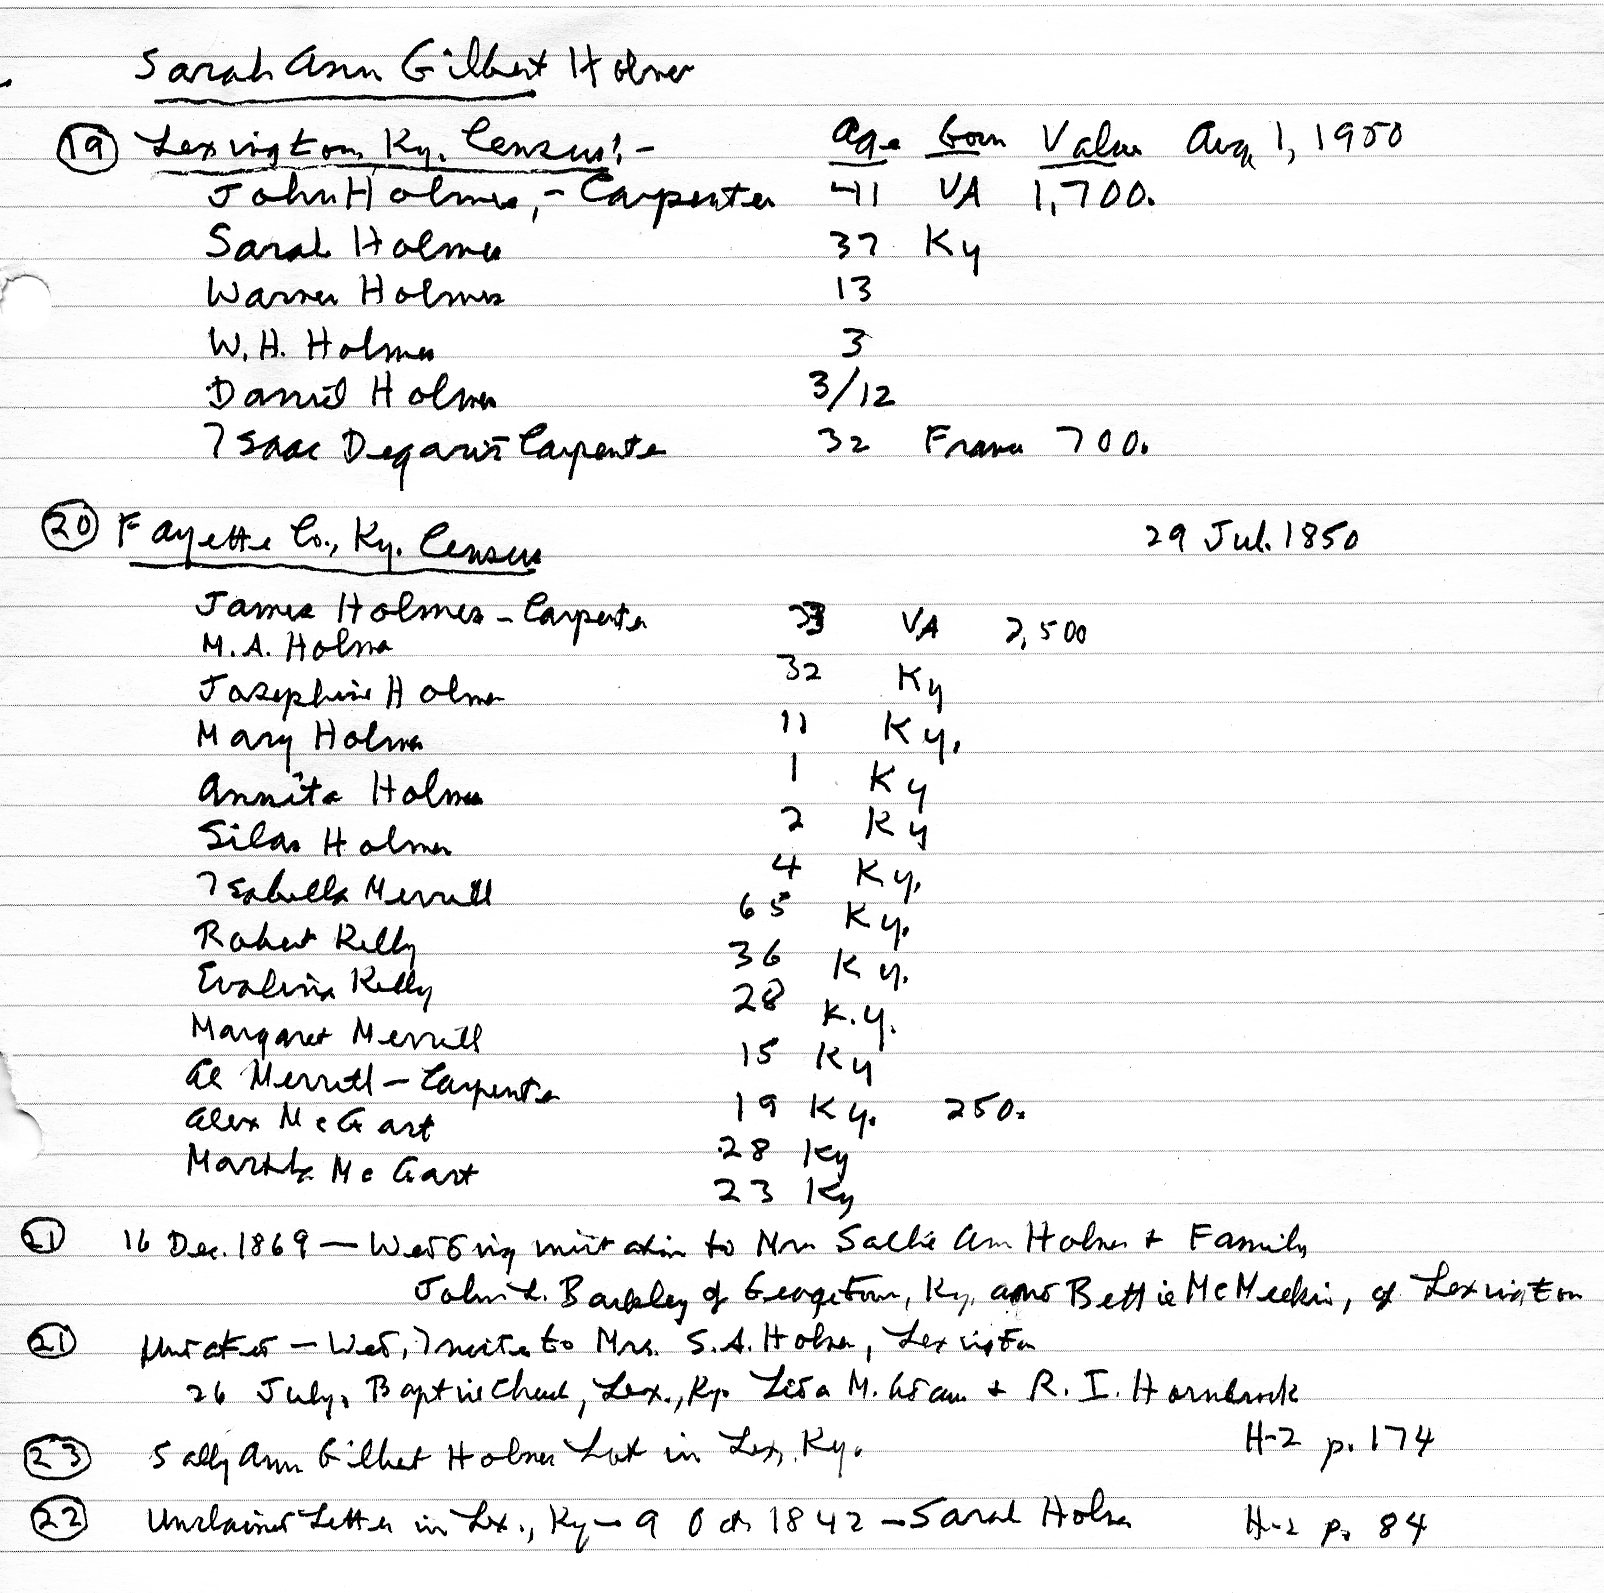 Sarah Ann Gilbert Holmes
19 Lexington, Ky. Census:- Age born Value Aug 1, 1950
John Holmes, - Carpenter 41 VA 1,700.
Sarah Holmes 37 Ky
Warner Holmes 13
W. H. Holmes 3
Daniel Holmes 3/12
Isaac Degaris Carpenter 32 France 700.
20 Fayette Co., Ky. Census 29 Jul. 1850
James Holmes - Carpenter 33 VA 2,500
M.A. Holmes 32 Ky
Josephine Holmes 11 Ky.
Mary Holmes 1 Ky
Annita Holmes 2 Ky
Silas Holmes 4 Ky.
Isabella Merrill 65 Ky.
Robert Kelly 36 Ky.
Evalina Kelly 28 K.y.
Margaret Merrill 15 Ky
Al Merrill - Carpenter 19 Ky. 250.
Alex McGart 28 Ky
Martha McGart 23 Ky
21 16 Dec. 1869 - Wedding invitation to Mrs Sallie Ann Holmes + Family
John L. Barkley of Georgetown, Ky. and Bettie McMeekin, of Lexington
21 Undated - Wed, Invite to Mrs. S.A. Holmes, Lexington
26 July, Baptist Church, Lex., Ky. M. + R. I. Hornbrook
23 Sally Ann Gilbert Holmes Lot in Lex, Ky. H-2 p. 174
22 Unclaimed Letter in Lex., Ky - 9 Oct 1842 - Sarah Holmes H-2 p. 84